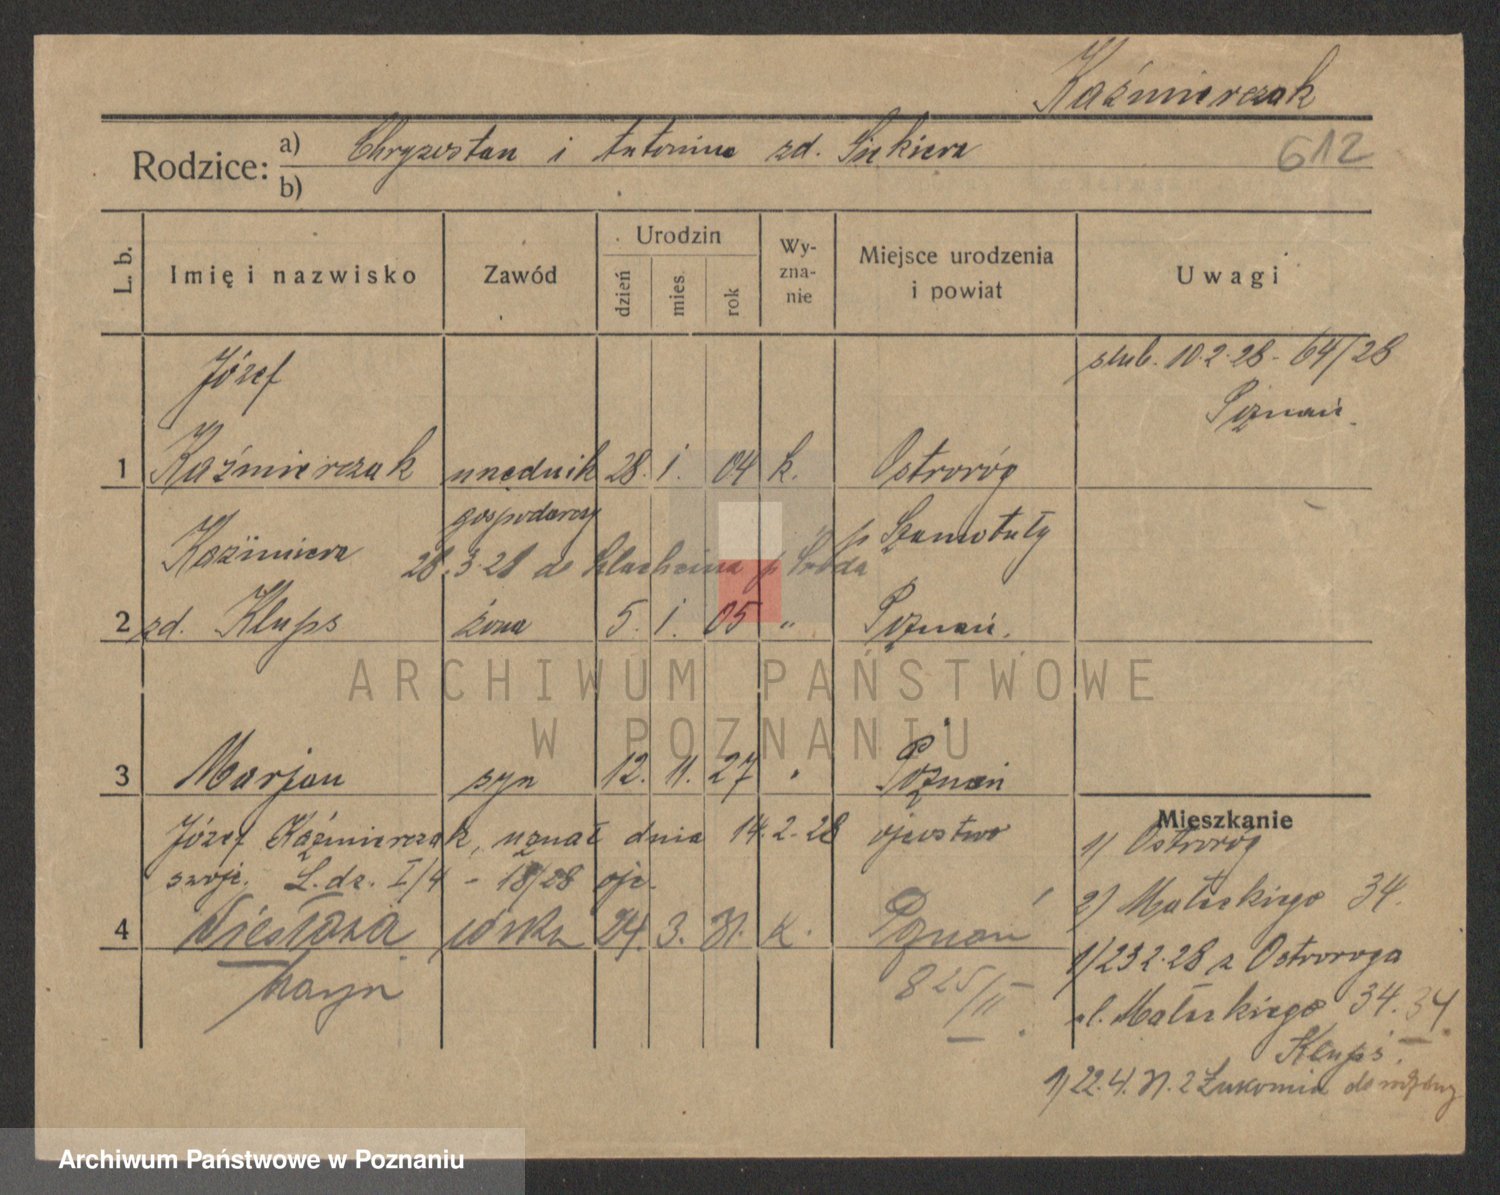 Kaźmierczak
Rodzice: a) Chryzostan i Antonina zd. Siekiera
612
b)
L. b.
Imię i nazwisko
Zawód
Urodzin
dzień
mies.
rok
Wy-
zna-
nie
Miejsce urodzenia
i powiat
Uwagi
Józef
ślub. 10.2.28 - 64/28
Poznań.
1 Kaźmierczak urzędnik 28. 1. 04 k. Ostroróg
gospodarczy
p Szamotuły
Kaźimiera 28.3.28 do p Środa
2 zd. Klups żona 5. 1. 05 " Poznań.
ARCHIWUM PAŃSTWOWE
W POZNANIU
3 Marjan syn 12. 11. 27 " Poznań
Mieszkanie
Józef Kaźmierczak, uznał dnia 14.2.28 ojcostwo
1) Ostroróg
swoje. L.dz. I/4 - 18/28 ojc.
2) Małeckiego 34.
4 córka 24. 3. 31. k. Poznań
1) 23 2.28 z Ostroroga
825/II
ul. Małeckiego 34. 34
Klups.
1) 22.4.31. z Łukomia do
Archiwum Państwowe w Poznaniu